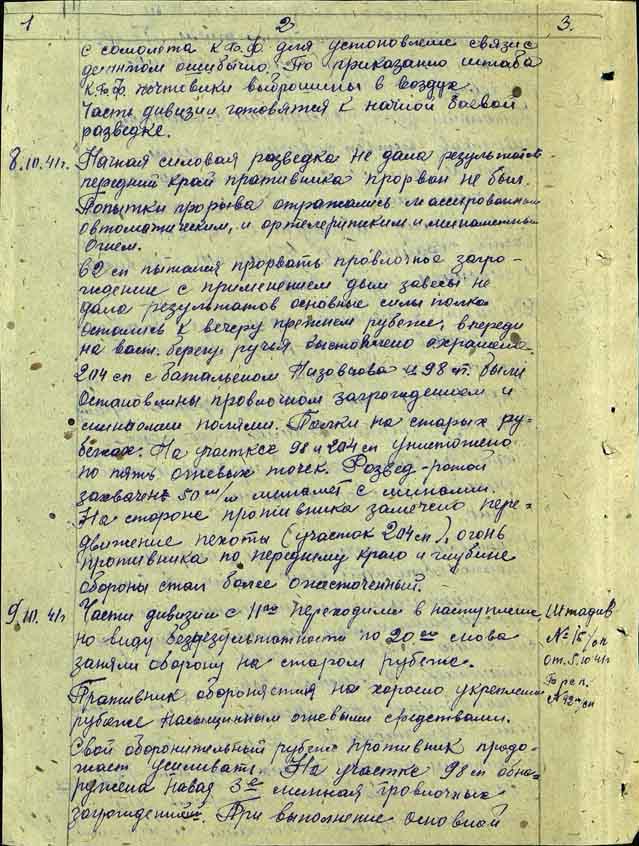 1 2 3.
с самолета К.Б.Ф. для установление связи с
десантом ошибочно. По приказанию штаба
К.Б.Ф. почтовики выброшины в воздух.
Часть дивизии готовятся к начной боевой
разведке.
8.10.41г. Начная силовая разведка не дала результатов
передний край пративника прорван не был.
Попытки прорыва отражались массированным
автоматическим, и артелерийским и минаметным
огнем.
62 сп пытался прорвать провлочное загро-
ждение с применением дым завесы не
дала результатов основные силы полка
остались к вечеру прежнем рубеже, впереди
на вост. берегу ручья выставлено охранение.
204 сп с баталь​ском Низовцова и 98 п. были
Остановлины провлочном загрождением и
минными полями. Полки на старых ру-
бежах. На участке 98 и 204 сп уничтожено
по пять огневых точек. Развед-ротой
захвачен 50 м/м минамет с минами.
На стороне противника замечено пере-
движение пехоты (участок 204 сп), огонь
противника по переднему краю и глубине
обороны стал более ожасточенный.
9.10.41г Части дивизии с 11 00 переходили в наступление
но виду бездезультатности по 20 00 снова
заняли оборону на старом рубеже.
Штадив
№ 15/оп
от 5.10.41г
№ 42/оп
Пративник обороняется на хорошо укреплением
рубеже насыщинным огневыми средствами.
Свой оборонительный рубеж противник продо-
жает усиливать. На участке 98 сп обна-
ружена навая 3 е минная провлочных
загрождений. При выполнение основной